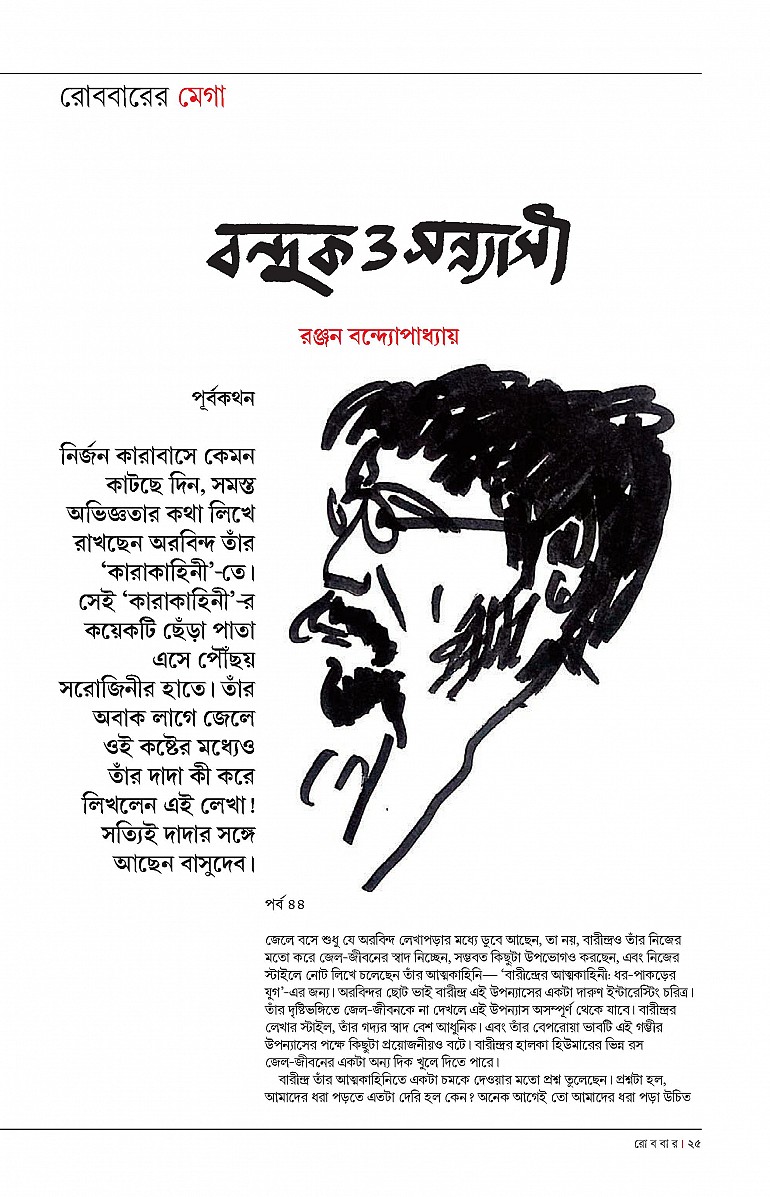 রোববারের মেগা
বন্দুক ও সন্ন্যাসী
রঞ্জন বন্দ্যোপাধ্যায়
পূর্বকথন
নির্জন কারাবাসে কেমন
কাটছে দিন, সমস্ত
অভিজ্ঞতার কথা লিখে
রাখছেন অরবিন্দ তাঁর
‘কারাকাহিনী’-তে।
সেই ‘কারাকাহিনী’-র
কয়েকটি ছেঁড়া পাতা
এসে পৌঁছয়
সরোজিনীর হাতে। তাঁর
অবাক লাগে জেলে
ওই কষ্টের মধ্যেও
তাঁর দাদা কী করে
লিখলেন এই লেখা!
সত্যিই দাদার সঙ্গে
আছেন বাসুদেব।
পর্ব ৪৪
জেলে বসে শুধু যে অরবিন্দ লেখাপড়ার মধ্যে ডুবে আছেন, তা নয়, বারীন্দ্রও তাঁর নিজের
মতো করে জেল-জীবনের স্বাদ নিচ্ছেন, সম্ভবত কিছুটা উপভোগও করছেন, এবং নিজের
স্টাইলে নোট লিখে চলেছেন তাঁর আত্মকাহিনি— ‘বারীন্দ্রের আত্মকাহিনী: ধর-পাকড়ের
যুগ’-এর জন্য। অরবিন্দর ছোট ভাই বারীন্দ্র এই উপন্যাসের একটা দারুণ ইন্টারেস্টিং চরিত্র।
তাঁর দৃষ্টিভঙ্গিতে জেল-জীবনকে না দেখলে এই উপন্যাস অসম্পূর্ণ থেকে যাবে। বারীন্দ্রর
লেখার স্টাইল, তাঁর গদ্যর স্বাদ বেশ আধুনিক। এবং তাঁর বেপরোয়া ভাবটি এই গম্ভীর
উপন্যাসের পক্ষে কিছুটা প্রয়োজনীয়ও বটে। বারীন্দ্রর হালকা হিউমারের ভিন্ন রস
জেল-জীবনের একটা অন্য দিক খুলে দিতে পারে।
বারীন্দ্র তাঁর আত্মকাহিনিতে একটা চমকে দেওয়ার মতো প্রশ্ন তুলেছেন। প্রশ্নটা হল,
আমাদের ধরা পড়তে এতটা দেরি হল কেন? অনেক আগেই তো আমাদের ধরা পড়া উচিত
রো ব বা র। ২৫